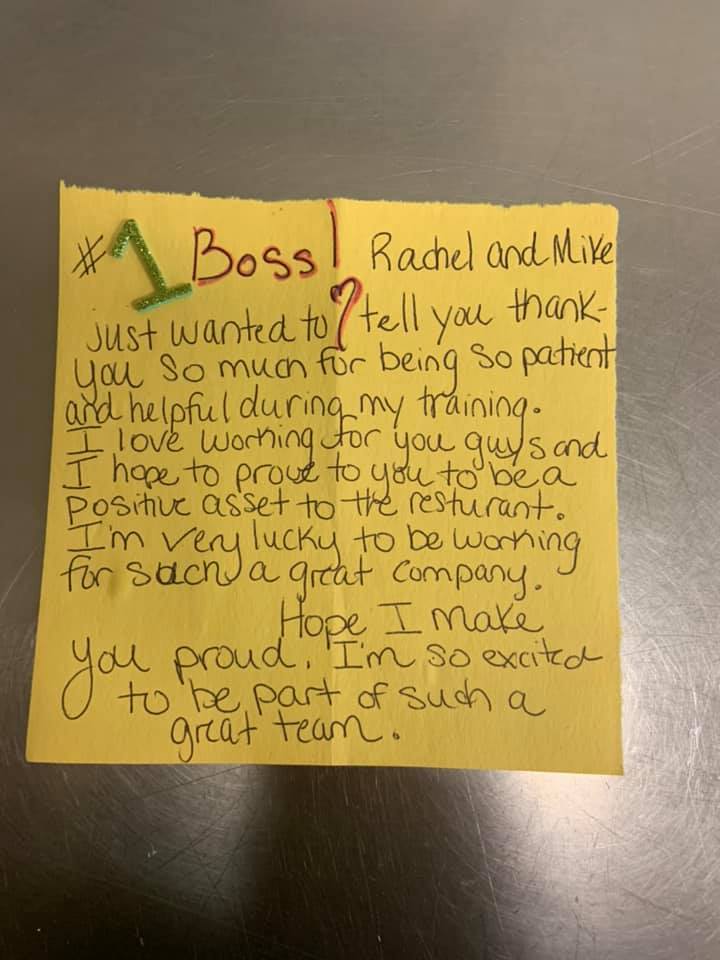 #1 Boss! Rachel and Mike
Just wanted to ? tell you thank-
you so much for being so patient
and helpful during my training.
I love working for you guys and
I hope to prove to you to be a
positive asset to the resturant.
I'm very lucky to be working
for such a great company.
Hope I make
you proud. I'm so excited
to be part of such a
great team.